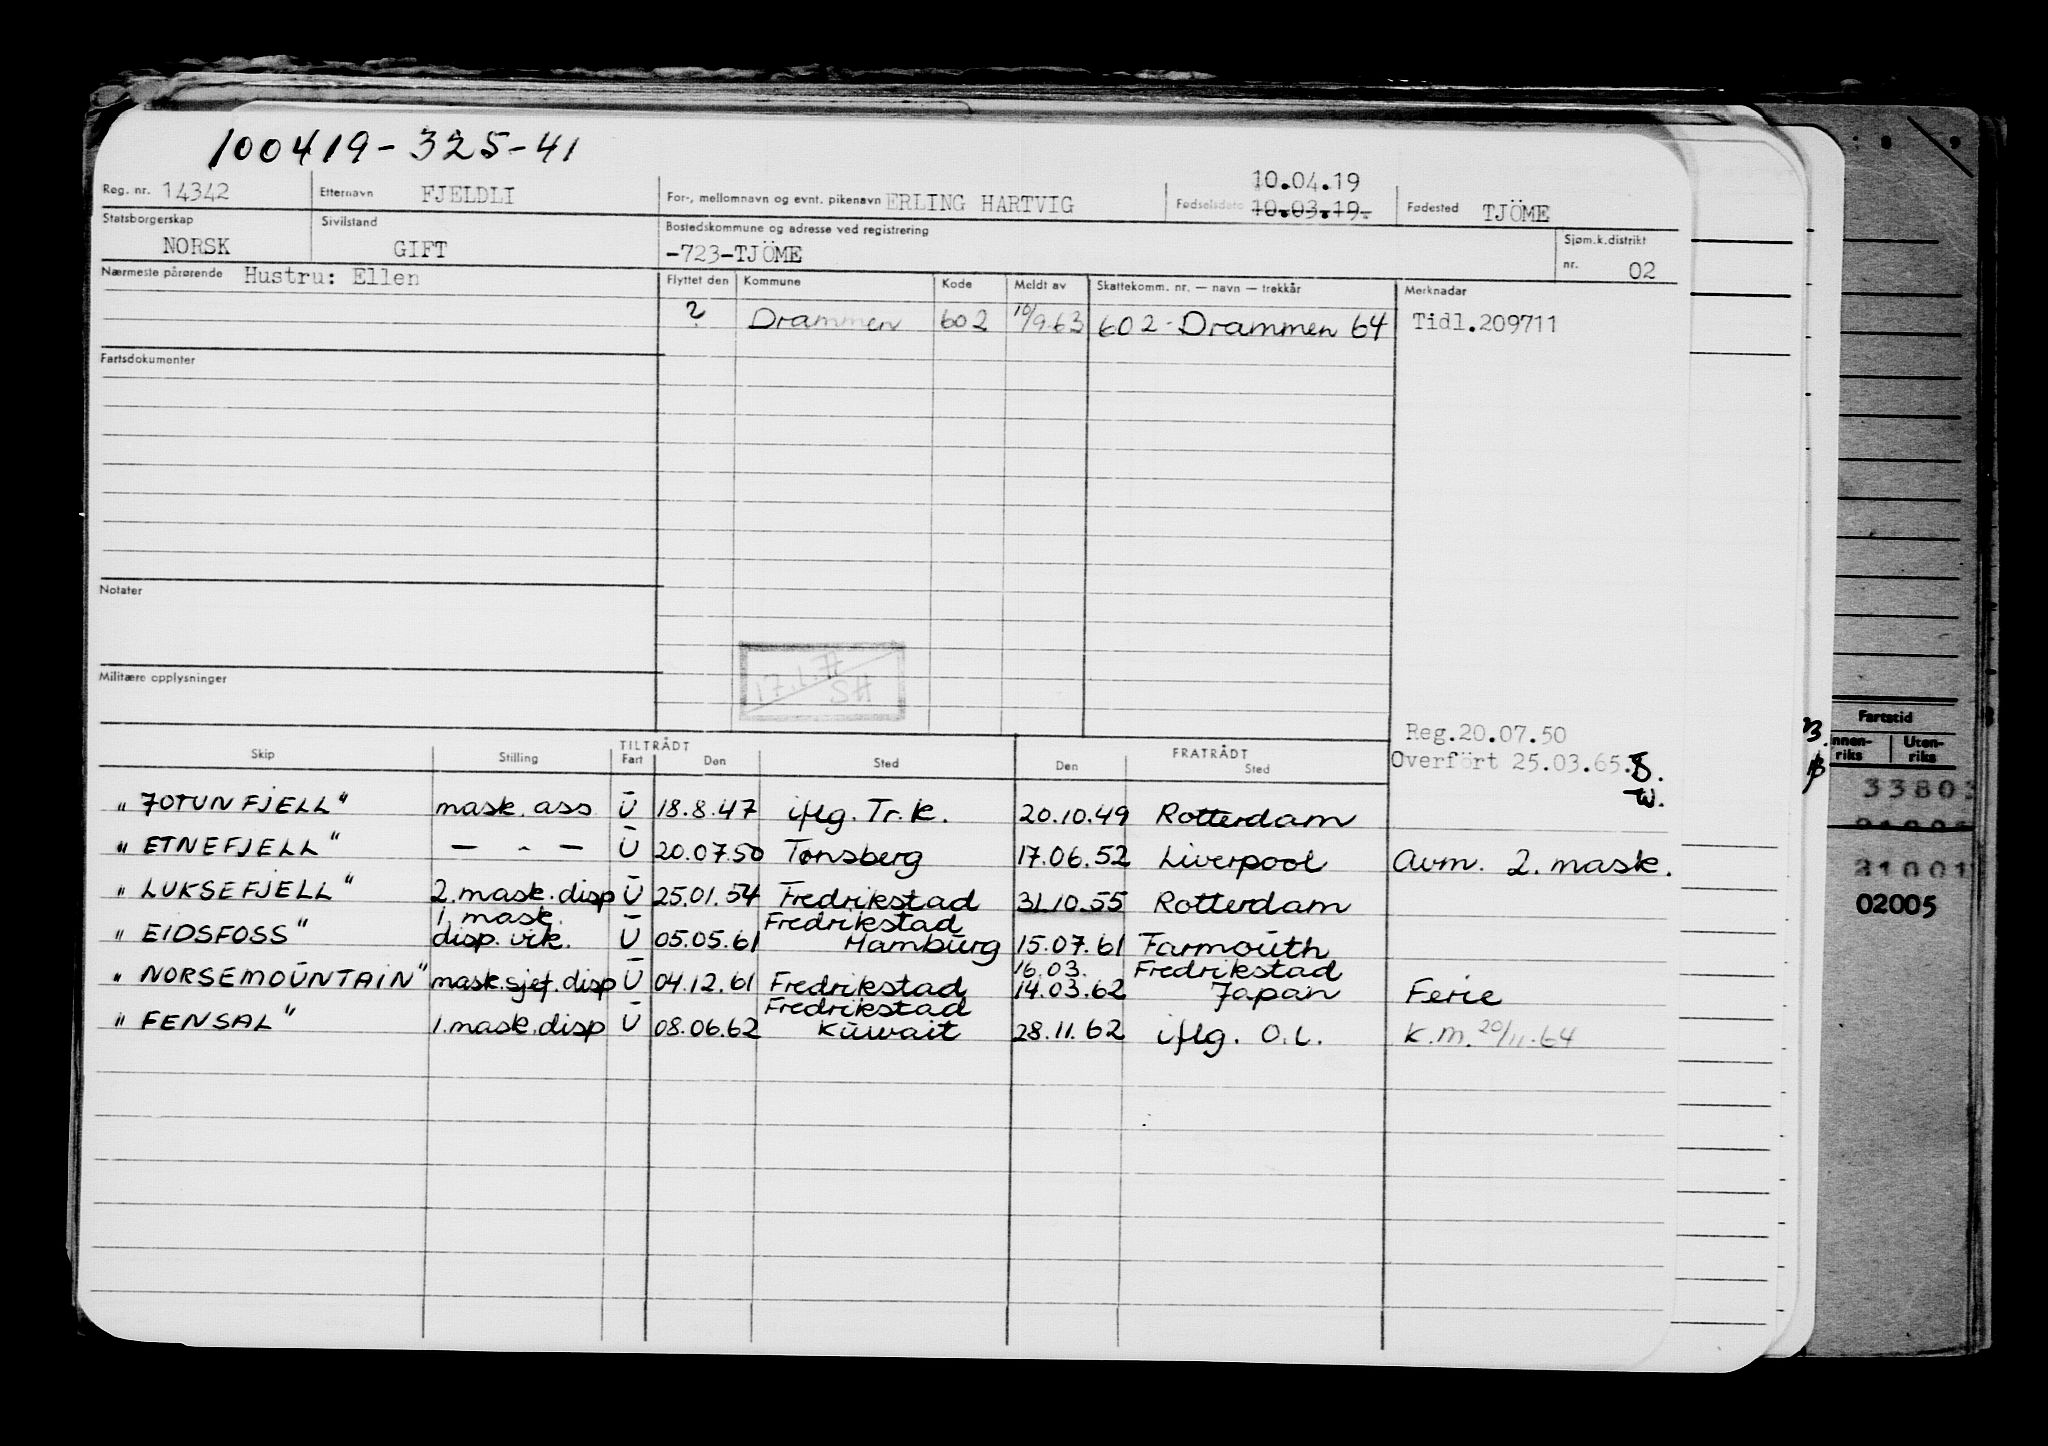 100419-325-41
Reg. nr. 14342 Etternavn FJELDLI For-, mellomnavn og evnt. pikenavn ERLING HARTVIG Fødselsdato 10.04.19 10.03.19. Fødested TJÖME
Statsborgerskap NORSK Sivilstand GIFT Bostedskommune og adresse ved registrering -723-TJÖME Sjøm.k.distrikt nr. 02
Nærmeste pårørende Hustru: Ellen Flyttet den Kommune Kode Meldt av Skattekomm. nr. — navn — trekkår Merknadar
? Drammen 602 10/9.63 602-Drammen 64 Tidl.209711
Fartsdokumenter
Notater
17.1.77
SH
Militære opplysninger
Reg.20.07.50
Overfört 25.03.65.
Skip Stilling TILTRÅDT Fart Den Sted FRATRÅDT Den Sted
"JOTUNFJELL" mask. ass U 18.8.47 iflg. Tr.k. 20.10.49 Rotterdam
"ETNEFJELL" — " — U 20.07.50 Tønsberg 17.06.52 Liverpool Avm. 2. mask.
"LUKSEFJELL" 2. mask. disp U 25.01.54 Fredrikstad 31.10.55 Rotterdam
"EIDSFOSS" 1. mask. disp. vik. U 05.05.61 Fredrikstad Hamburg 15.07.61 Farmouth
"NORSEMOUNTAIN" mask.sjef.disp U 04.12.61 Fredrikstad 16.03. 14.03.62 Fredrikstad Japan Ferie
"FENSAL" 1. mask. disp U 08.06.62 Fredrikstad Kuwait 28.11.62 iflg. O.L. K.M. 20/11.64
Fartstid
Uten-
riks
riks
02005